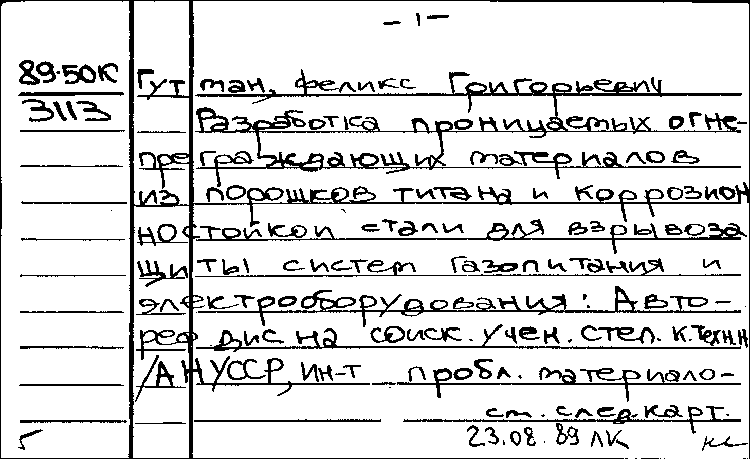 - 1 -
89-50К Гутман, Феликс Григорьевич
3113 Разработка проницаемых огне-
преграждающих материалов
из порошков титана и коррозион
ностойкой стали для взрывоза
щиты систем газопитания и
электрооборудования: Авто-
реф дис на соиск. учен. степ. к.техн.н
/АН УССР, ин-т пробл. материало-
см. след. карт.
5 23.08.89 ЛК